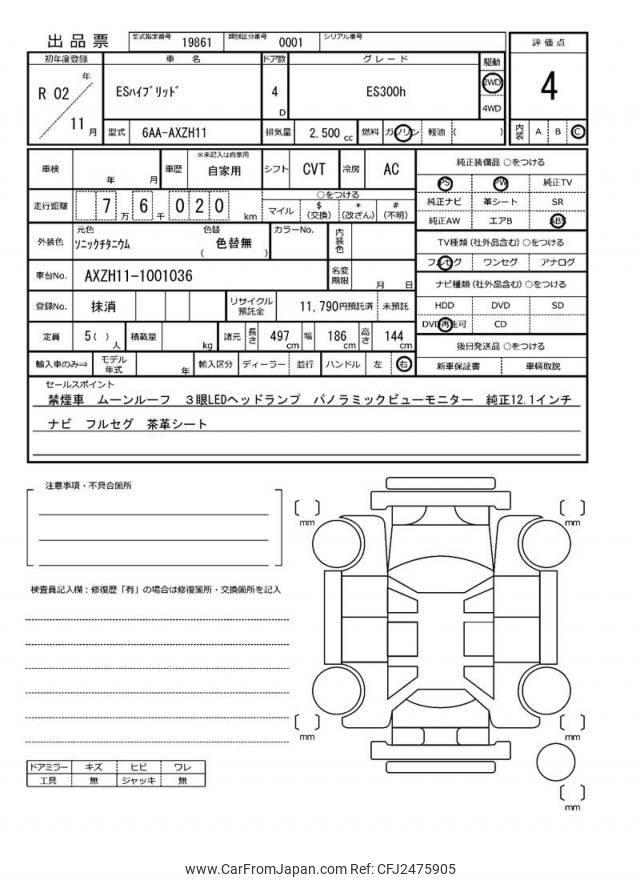 出品票
型式指定番号 19861 類別区分番号 0001 シリアル番号
評価点
4
初年度登録 車名 ドア数 グレード 駆動
R 02 年 11 月
ESﾊｲﾌﾞﾘｯﾄﾞ 4 D ES300h 2WD 4WD
型式 6AA-AXZH11 排気量 2,500 cc 燃料 ガソリン 軽油 ( )
内装 A B C
車検 年 月 車歴 ※未記入は自家用 自家用 シフト CVT 冷房 AC
走行距離 7 万 6 千 0 2 0 km
○をつける
マイル $ (交換) * (改ざん) # (不明)
外装色 元色 ｿﾆｯｸﾁﾀﾆｳﾑ 色替 ( 色替無 ) カラーNo. 内装色
車台No. AXZH11-1001036 名変期限 月 日
登録No. 抹消 リサイクル預託金 11,790円預託済 未預託
定員 5( ) 人 積載量 kg 諸元 長さ 497 cm 幅 186 cm 高さ 144 cm
輸入車のみ⇒ モデル年式 年 輸入区分 ディーラー 並行 ハンドル 左 右
純正装備品 ○をつける
PS PW 純正TV
純正ナビ 革シート SR
純正AW エアB ABS
TV種類 (社外品含む) ○をつける
フルセグ ワンセグ アナログ
ナビ種類 (社外品含む) ○をつける
HDD DVD SD
DVD再生可 CD
後日発送品 ○をつける
新車保証書 車輌取説
セールスポイント
禁煙車 ムーンルーフ 3眼LEDヘッドランプ パノラミックビューモニター 純正12.1インチ
ナビ フルセグ 茶革シート
注意事項・不具合箇所
検査員記入欄：修復歴「有」の場合は修復箇所・交換箇所を記入
mm
mm
mm
mm
mm
ドアミラー キズ ヒビ ワレ
工具 無 ジャッキ 無
www.CarFromJapan.com Ref: CFJ2475905